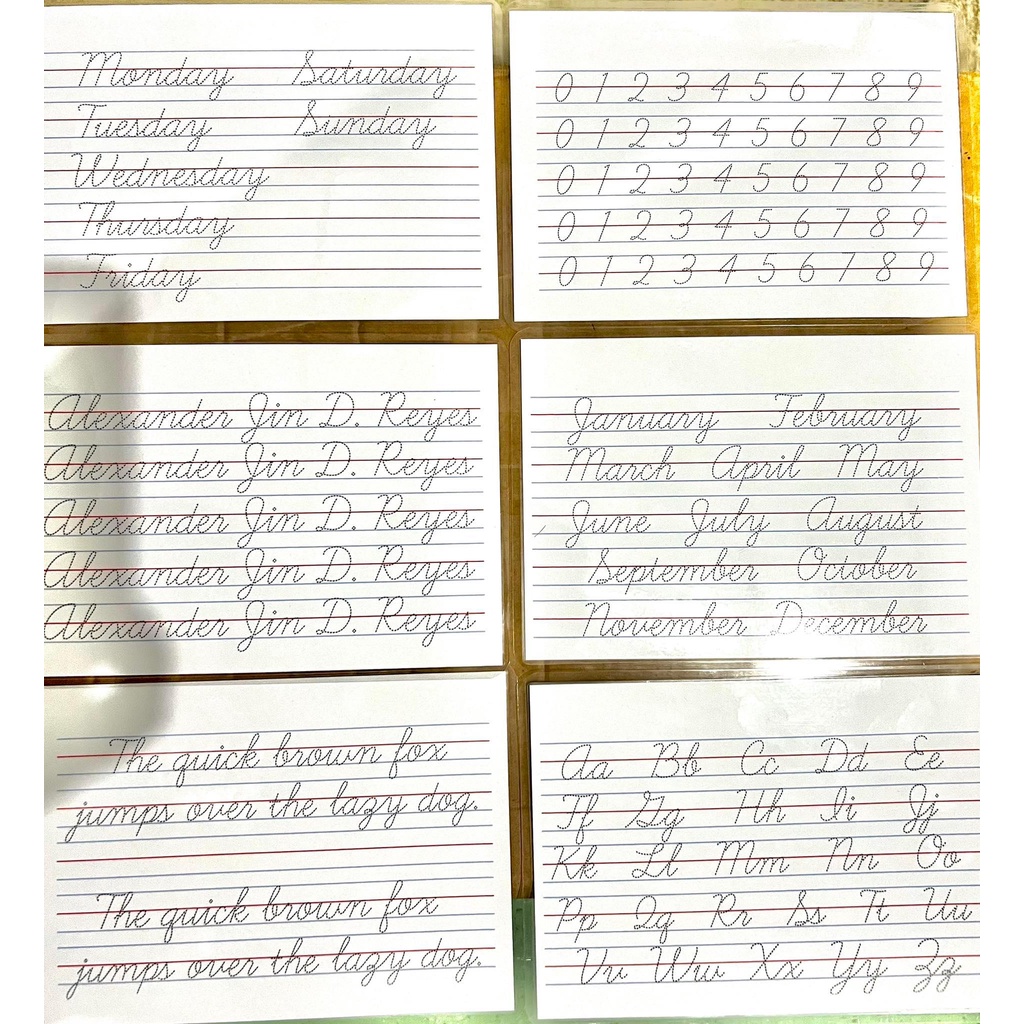 Monday Saturday
Tuesday Sunday
Wednesday
Thursday
Friday
0 1 2 3 4 5 6 7 8 9
0 1 2 3 4 5 6 7 8 9
0 1 2 3 4 5 6 7 8 9
0 1 2 3 4 5 6 7 8 9
0 1 2 3 4 5 6 7 8 9
Alexander Jin D. Reyes
Alexander Jin D. Reyes
Alexander Jin D. Reyes
Alexander Jin D. Reyes
Alexander Jin D. Reyes
January February
March April May
June July August
September October
November December
The quick brown fox
jumps over the lazy dog.
The quick brown fox
jumps over the lazy dog.
Aa Bb Cc Dd Ee
Ff Gg Hh Ii Jj
Kk Ll Mm Nn Oo
Pp Qq Rr Ss Tt Uu
Vv Ww Xx Yy Zz